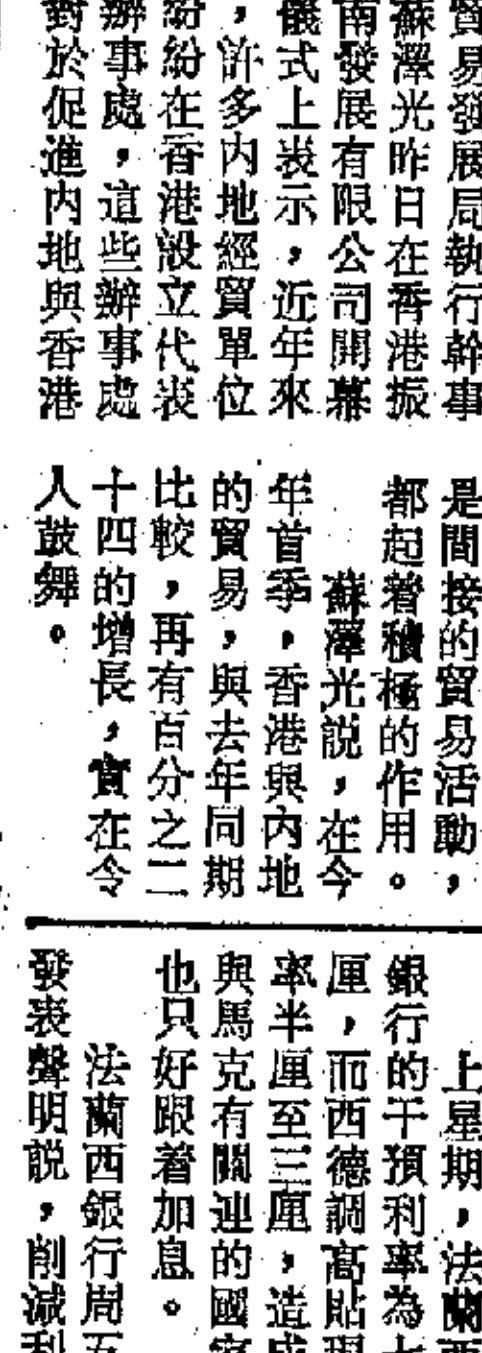 貿易發展局執行幹事
蘇澤光昨日在香港振
南發展有限公司開幕
儀式上表示，近年來
，許多内地經貿單位
紛紛在香港設立代表
辦事處，這些辦事處
對於促進内地與香港
是間接的貿易活動，
都起着積極的作用。
蘇澤光説，在今
年首季，香港與内地
的貿易，與去年同期
比較，再有百分之二
十四的增長，實在令
人鼓舞。
上星期，法蘭西
銀行的干預利率為七
厘，而西德調高貼現
率半厘至三厘，造成
與馬克有關連的國家
也只好跟着加息。
法蘭西銀行周五
發表聲明説，削減利